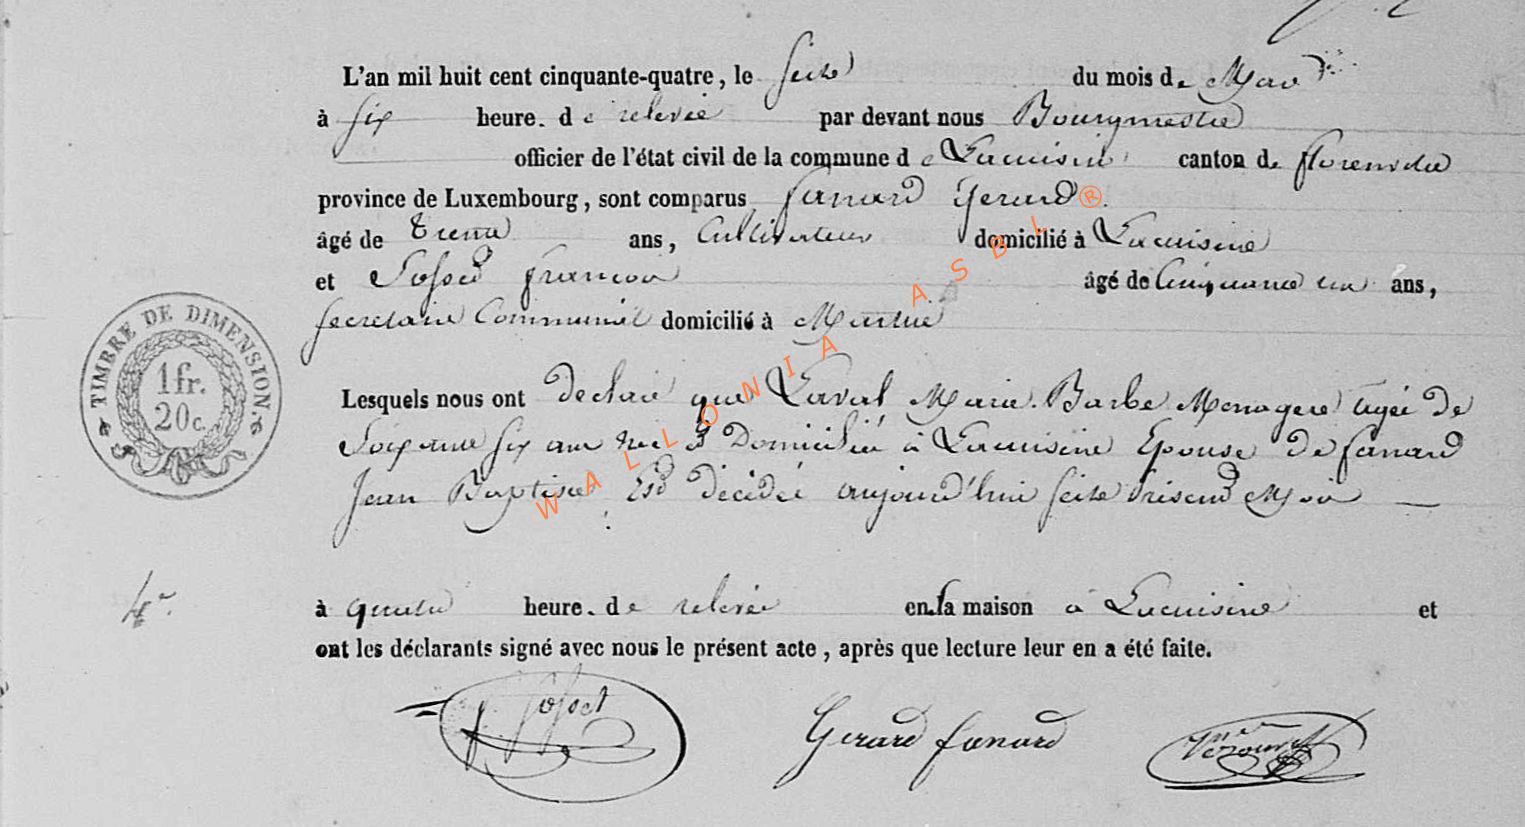 L'an mil huit cent cinquante-quatre, le seize du mois de Mai
à six heure. de relevée par devant nous Bourgmestre
officier de l'état civil de la commune de Lacuisine canton de florenville
province de Luxembourg, sont comparus fanard Gerard
âgé de trente ans, Cultivateur domicilié à Lacuisine
et Gosset françois âgé de Cinquante un ans,
secretaire Communal domicilié à Martué
TIMBRE DE DIMENSION.
1 fr.
20 c.
Lesquels nous ont declaré que Laval Marie. Barbe Menagere agée de
Soixante six ans née & Domiciliée à Lacuisine Epouse de fanard
Jean Baptiste Est décédée aujourd'hui seize present Mois
à quatre heure. de relevée en sa maison à Lacuisine et
ont les déclarants signé avec nous le présent acte, après que lecture leur en a été faite.
Gosset Gerard fanard
WALLONIA ASBL ®